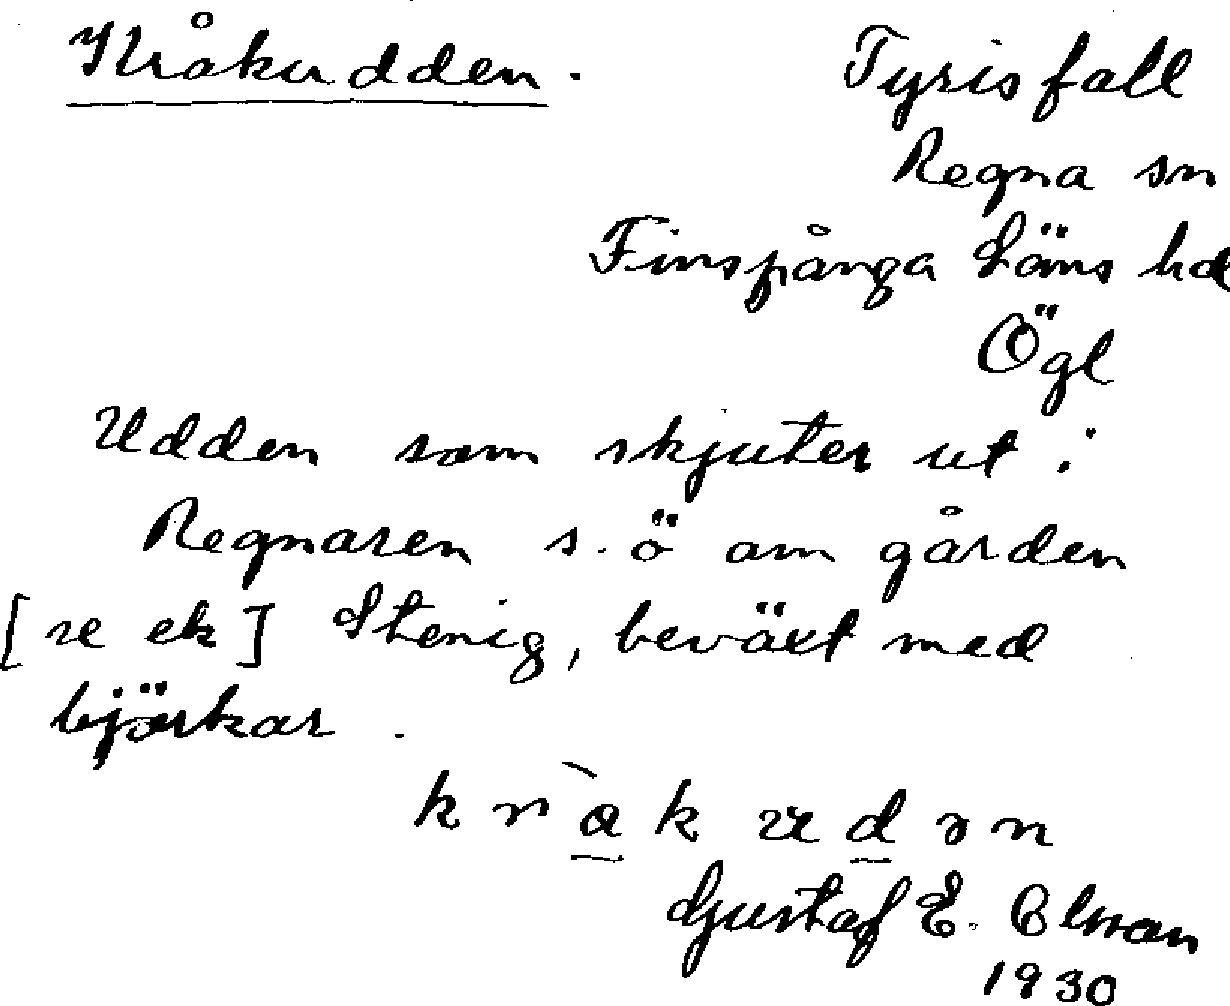 Kråkudden.
Tyrisfall
Regna sn
Finspånga Läns hd
Ögl
Udden som skjuter ut i
Regnaren s. ö om gården
[se ek] Stenig, beväxt med
björkar.
Gustaf E.
1930